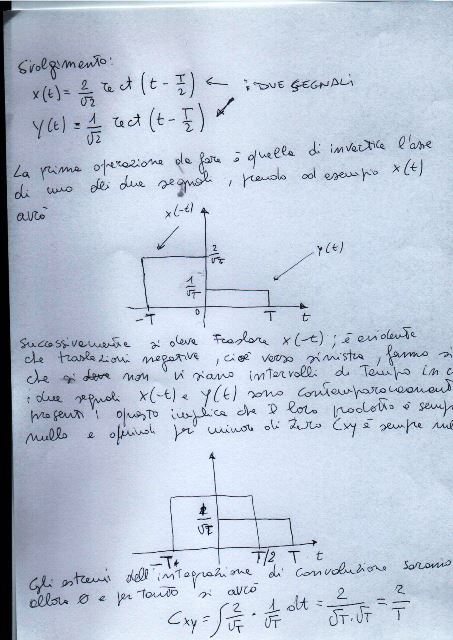 Svolgimento:
x(t) = 2/√2 rect (t - T/2) ← i DUE SEGNALI
y(t) = 1/√2 rect (t - T/2)
La prima operazione da fare è quella di invertire l'asse
di uno dei due segnali, prendo ad esempio x(t)
avrò
x(-t)
2/√T
y(t)
1/√T
-T 0 T t
Successivamente si deve traslare x(-t); è evidente
che traslazioni negative, cioè verso sinistra, fanno si
che si deve non vi siano intervalli di tempo in c
i due segnali x(-t) e y(t) sono contemporaneament
presenti; questo implica che il loro prodotto è semp
nullo e quindi per minori di zero Cxy è sempre nul
1/√T
-T+ T/2 T t
Gli estremi dell'integrazione di convoluzione saranno
allora 0 e per tanto si avrà
Cxy = ∫ 2/√T · 1/√T dt = 2/√T·√T = 2/T